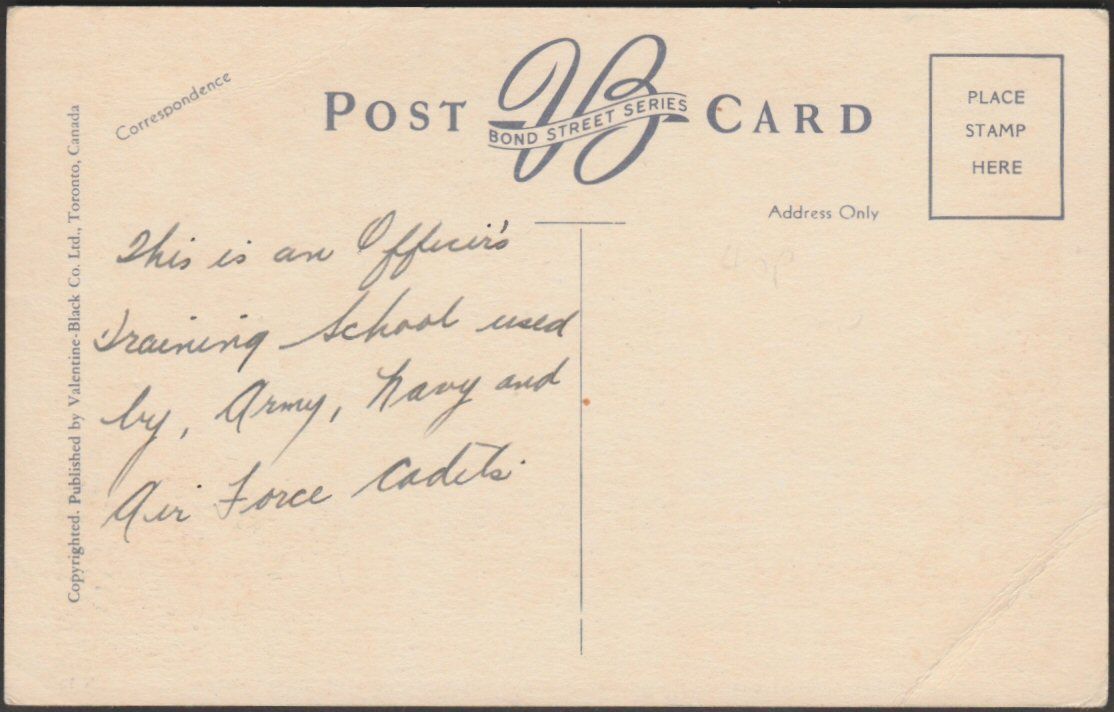 Correspondence
POST CARD
VB
BOND STREET SERIES
PLACE
STAMP
HERE
Address Only
Copyrighted. Published by Valentine-Black Co. Ltd., Toronto, Canada
This is an Officer's
Training School used
by, Army, Navy and
Air Force Cadets.